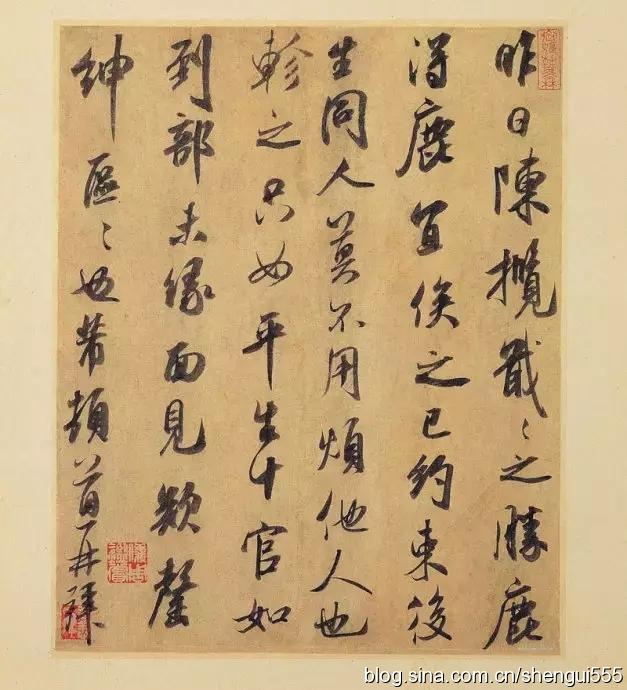 昨日陳攬戢〻之勝鹿
得鹿宜俟之已約束後
生同人莫不用煩他人也
軫之只如平生十官如
到部未緣面見欵罄
紳區〻也芾頓首再拜
blog.sina.com.cn/shengui555